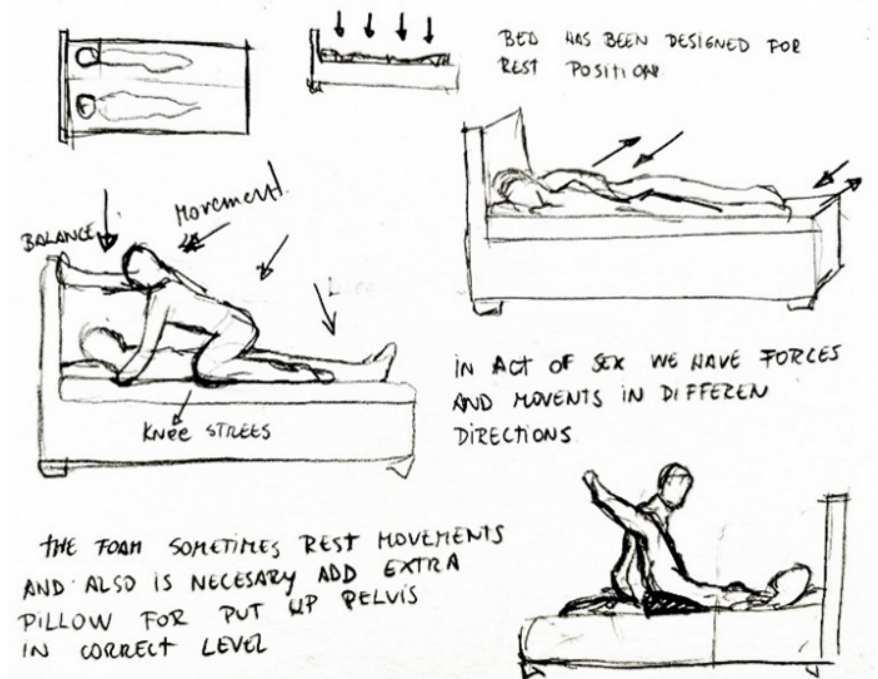 BED HAS BEEN DESIGNED FOR
REST POSITION
MOVEMENT
BALANCE
IN ACT OF SEX WE HAVE FORCES
AND MOVENTS IN DIFFEREN
DIRECTIONS
KNEE STREES
THE FOAM SOMETIMES REST MOVEMENTS
AND ALSO IS NECESARY ADD EXTRA
PILLOW FOR PUT UP PELVIS
IN CORRECT LEVEL